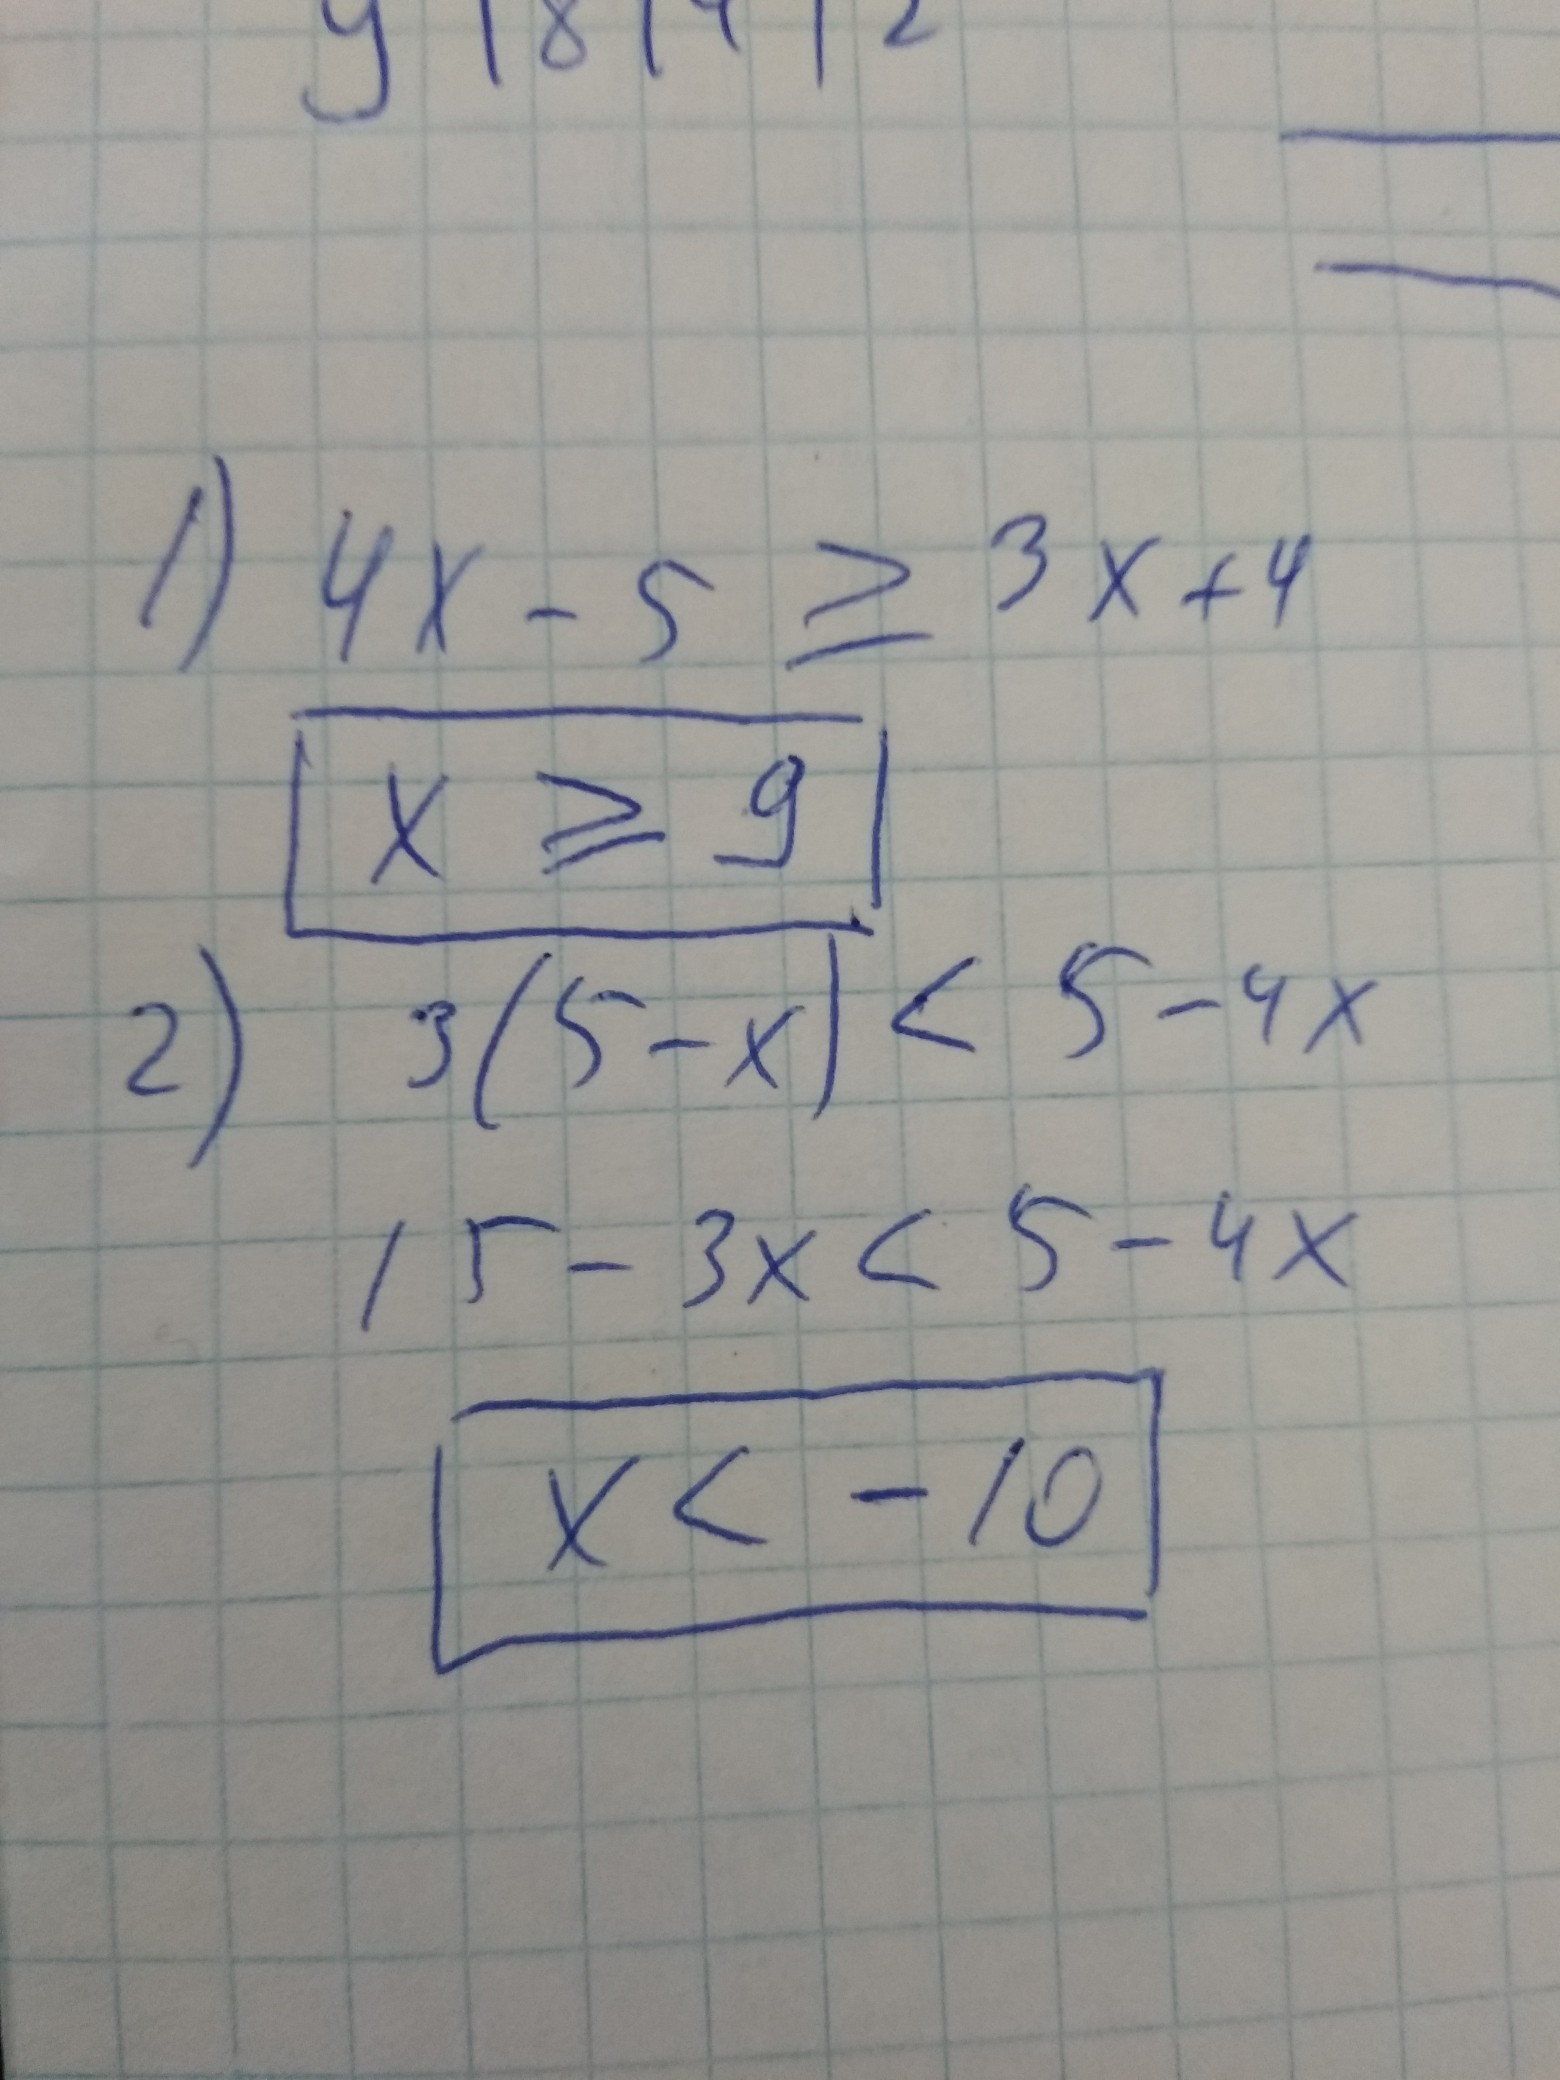 y | 8 | 4 | 2
1) 4x - 5 ≥ 3x + 4
x ≥ 9
2) 3(5 - x) < 5 - 4x
15 - 3x < 5 - 4x
x < - 10